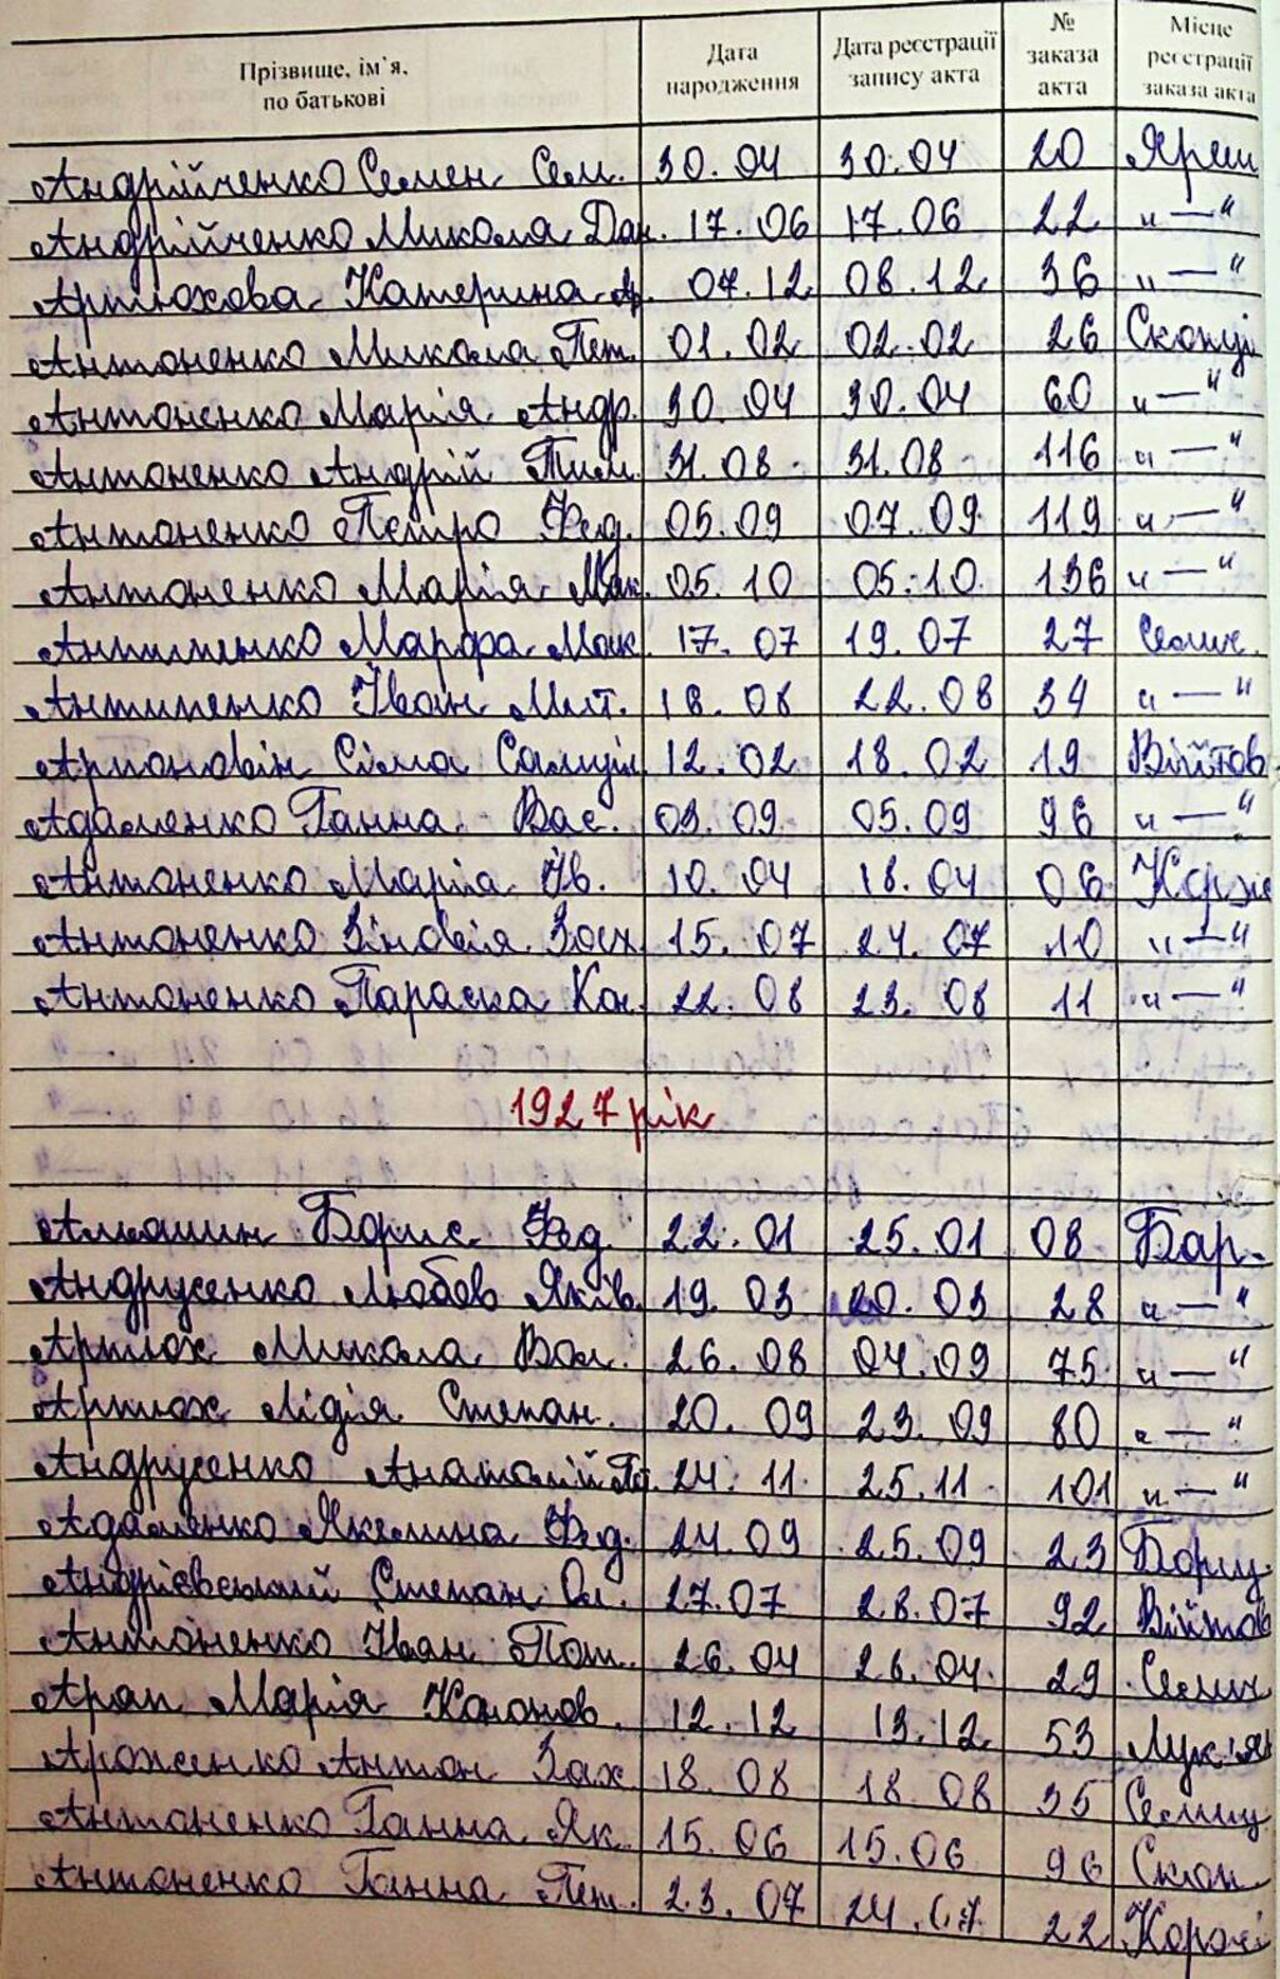 Прізвище, ім'я, по батькові Дата народження Дата реєстрації запису акта № заказа акта Місце реєстрації заказа акта
Андрійченко Семен Сем. 30.04 30.04 20 Яреш
Андрійченко Микола Дан. 17.06 17.06 22 "—"
Артюхова Катерина 07.12 08.12 36 "—"
Антоненко Микола Пет. 01.02 02.02 26
Антоненко Марія Андр. 30.04 30.04 60 "—"
Антоненко Андрій Тим. 31.08 31.08 116 "—"
Антоненко Петро Фед. 05.09 07.09 119 "—"
Антоненко Марія Мак. 05.10 05.10 136 "—"
Антипенко Марфа Мак. 17.07 19.07 27 Селич.
Антипенко Іван Мит. 18.08 22.08 34 "—"
Сіма Самуїл 12.02 18.02 19 Війтов
Адаменко Ганна Вас. 03.09 05.09 96 "—"
Антоненко Марія Ів. 10.04 18.04 06 Корж
Антоненко Зіновія 15.07 24.07 10 "—"
Антоненко Параска Кон. 22.08 23.08 11 "—"
1927 рік
Алюшин Борис Фед 22.01 25.01 08 Бар.
Андрусенко Любов Яків. 19.03 20.03 28 "—"
Артюх Микола Вол. 26.08 04.09 75 "—"
Артюх Лідія Степан. 20.09 23.09 80 "—"
Андрусенко Анатолій 24.11 25.11 101 "—"
Адаменко Якелина Фед. 24.09 25.09 23 Борщ.
Андрієвський Степан Ол. 27.07 28.07 92 Війтов
Антоненко Іван Пот. 26.04 26.04 29 Селич
Арап Марія Конов. 12.12 13.12 53 Лук'я
Антон Зах 18.08 18.08 35 Селищ
Антоненко Ганна Як. 15.06 15.06 96 Скоп.
Антоненко Ганна Пет. 23.07 24.07 22 Корж